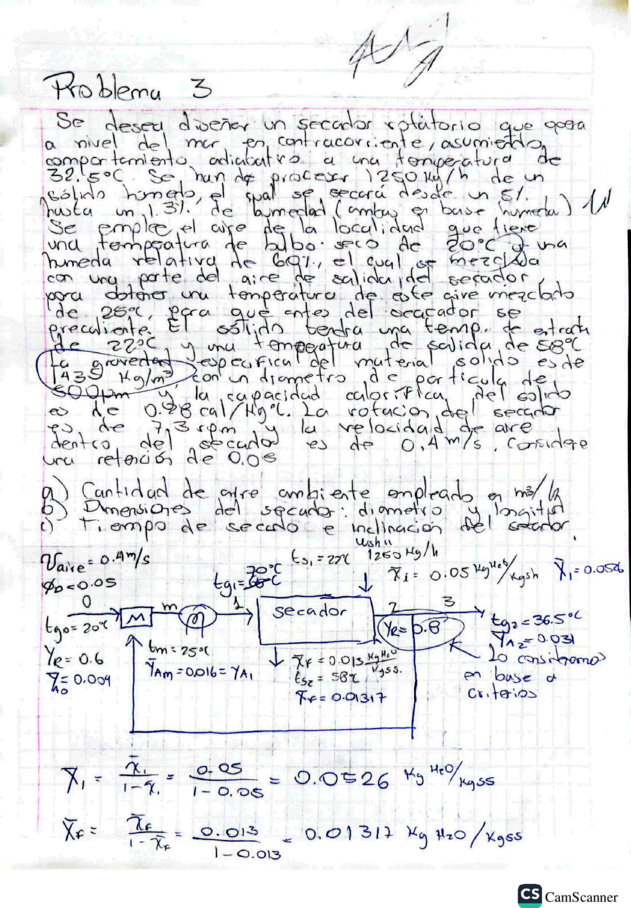 Problema 3
Se desea diseñar un secador rotatorio que opera
a nivel del mar en contracorriente, asumiendo
comportamiento adiabatico a una temperatura de
32.5°C. Se han de procesar 1250 Kg/h de un
sólido húmedo, el cual se secará desde un 5%
hasta un 1.3% de humedad (ambas en base humeda)
Se emplea el aire de la localidad que tiene
una temperatura de bulbo seco de 20°C y una
humeda relativa de 60%, el cual se mezclada
con una parte del aire de salida del secador,
para obtener una temperatura de este aire mezclado
de 25°C, para que antes del secador se
precaliente. El sólido tendra una temp. de entrada
de 22°C y una temperatura de salida de 58°C
La gravedad especifica del material solido es de
1435 Kg/m³ con un diametro de particula de
500µm y la capacidad calorifica del solido
es de 0.28 cal/Kg°C. La rotacion del secador
es de 7.3 rpm y la velocidad de aire
dentro del secador es de 0.4 m/s. Considere
una retención de 0.05
a) Cantidad de aire ambiente empleado en m³/h
b) Dimensiones del secador: diametro y longitud
c) Tiempo de secado e inclinacion del secador.
Vaire = 0.4m/s
70°C
ts1 = 22°C
1250 Kg/h
ϕD = 0.05
tg1 =
X̄1 = 0.05 KgH2O/Kgsh
X̄1 = 0.0526
0
m
1
secador
2
3
M
tg0 = 20°C
YR = 0.8
tg2 = 36.5°C
YR = 0.6
tm = 25°C
X̄F = 0.013 KgH2O/Kgss.
ȲA2 = 0.031
ȲAm = 0.016 = YA1
ts2 = 58°C
Lo consideramos
= 0.009
X̄F = 0.01317
en base a
criterios
X̄1 = x̄1/1-x̄1 = 0.05/1-0.05 = 0.0526 Kg H2O/Kgss
X̄F = x̄F/1-x̄F = 0.013/1-0.013 = 0.01317 Kg H2O/Kgss
CS CamScanner